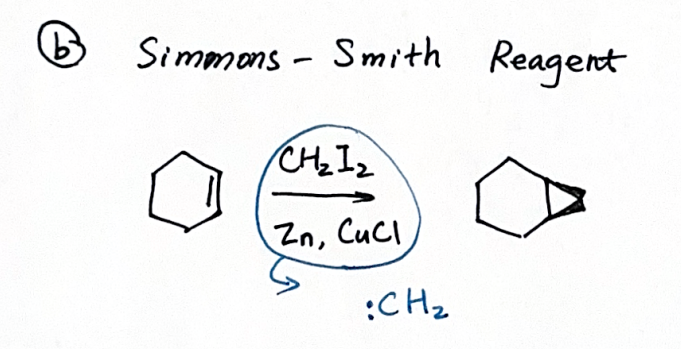 ⓑ Simmons - Smith Reagent
CH₂I₂
Zn, CuCl
:CH₂